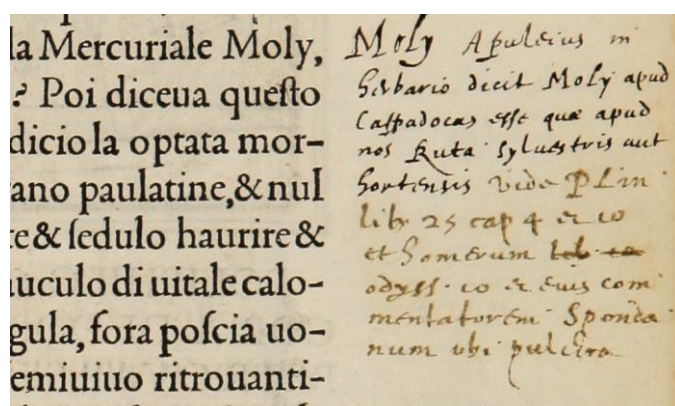 la Mercuriale Moly,
? Poi diceua queſto
dicio la optata mor-
ano paulatine, & nul
te & ſedulo haurire &
auculo di uitale calo-
gula, fora poſcia uo-
ſemiuiuo ritrouanti-
Moly Apuleius in
herbario dicit Moly apud
Cappadocas esse quæ apud
nos Ruta sylvestris aut
hortensis vide Plin
lib 25 cap 4 et 10
et Homerum lib
odyss. 10 et eius com
mentatorem Sponda
num ubi pulchra